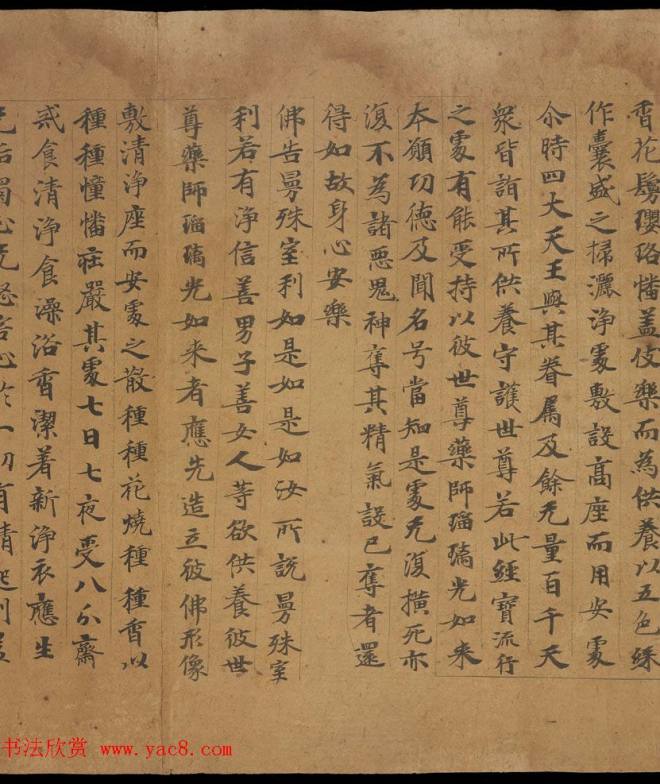 香花鬘瓔珞幡盖伎樂而為供養以五色綵
作囊盛之掃灑淨處敷設高座而用安處
尒時四大天王與其眷属及餘无量百千天
衆皆詣其所供養守護世尊若此經寶流行
之處有能受持以彼世尊藥師瑠璃光如来
本願功德及聞名号當知是處无復横死亦
復不為諸惡鬼神奪其精氣設已奪者還
得如故身心安樂
佛告曼殊室利如是如是如汝所說曼殊室
利若有淨信善男子善女人等欲供養彼世
尊藥師瑠璃光如来者應先造立彼佛形像
敷清淨座而安處之散種種花燒種種香以
種種幢幡莊嚴其處七日七夜受八分齋
戒食清淨食澡浴香潔着新淨衣應生
无垢濁心无怒害心於一切有情起利益
书法欣赏 www.yac8.com